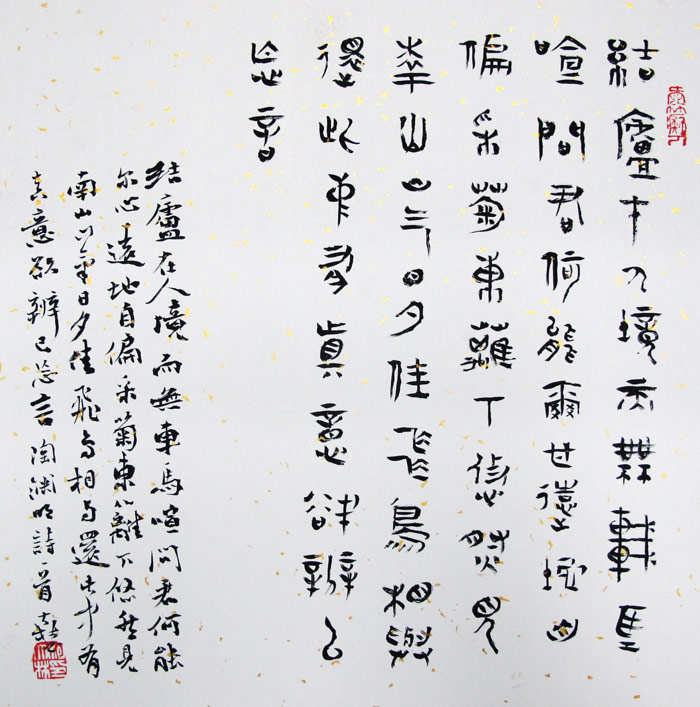 結廬在人境而無車馬
喧問君何能爾心遠地自
偏采菊東籬下悠然見
南山山气日夕佳飛鳥相與
還此中有真意欲辨已
忘言
结廬在人境而無車馬喧问君何能
尔心遠地自偏采菊東籬下悠然見
南山山氣日夕佳飛鳥相与還此中有
真意欲辨已忘言陶渊明詩一首